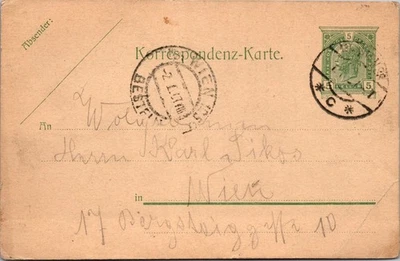 Absender:
5
Korrespondenz-Karte.
5 5
WIEN
BESTELLT
* C *
An
Herrn Karl Sikos
in Wien
17 Bergsteiggasse 10